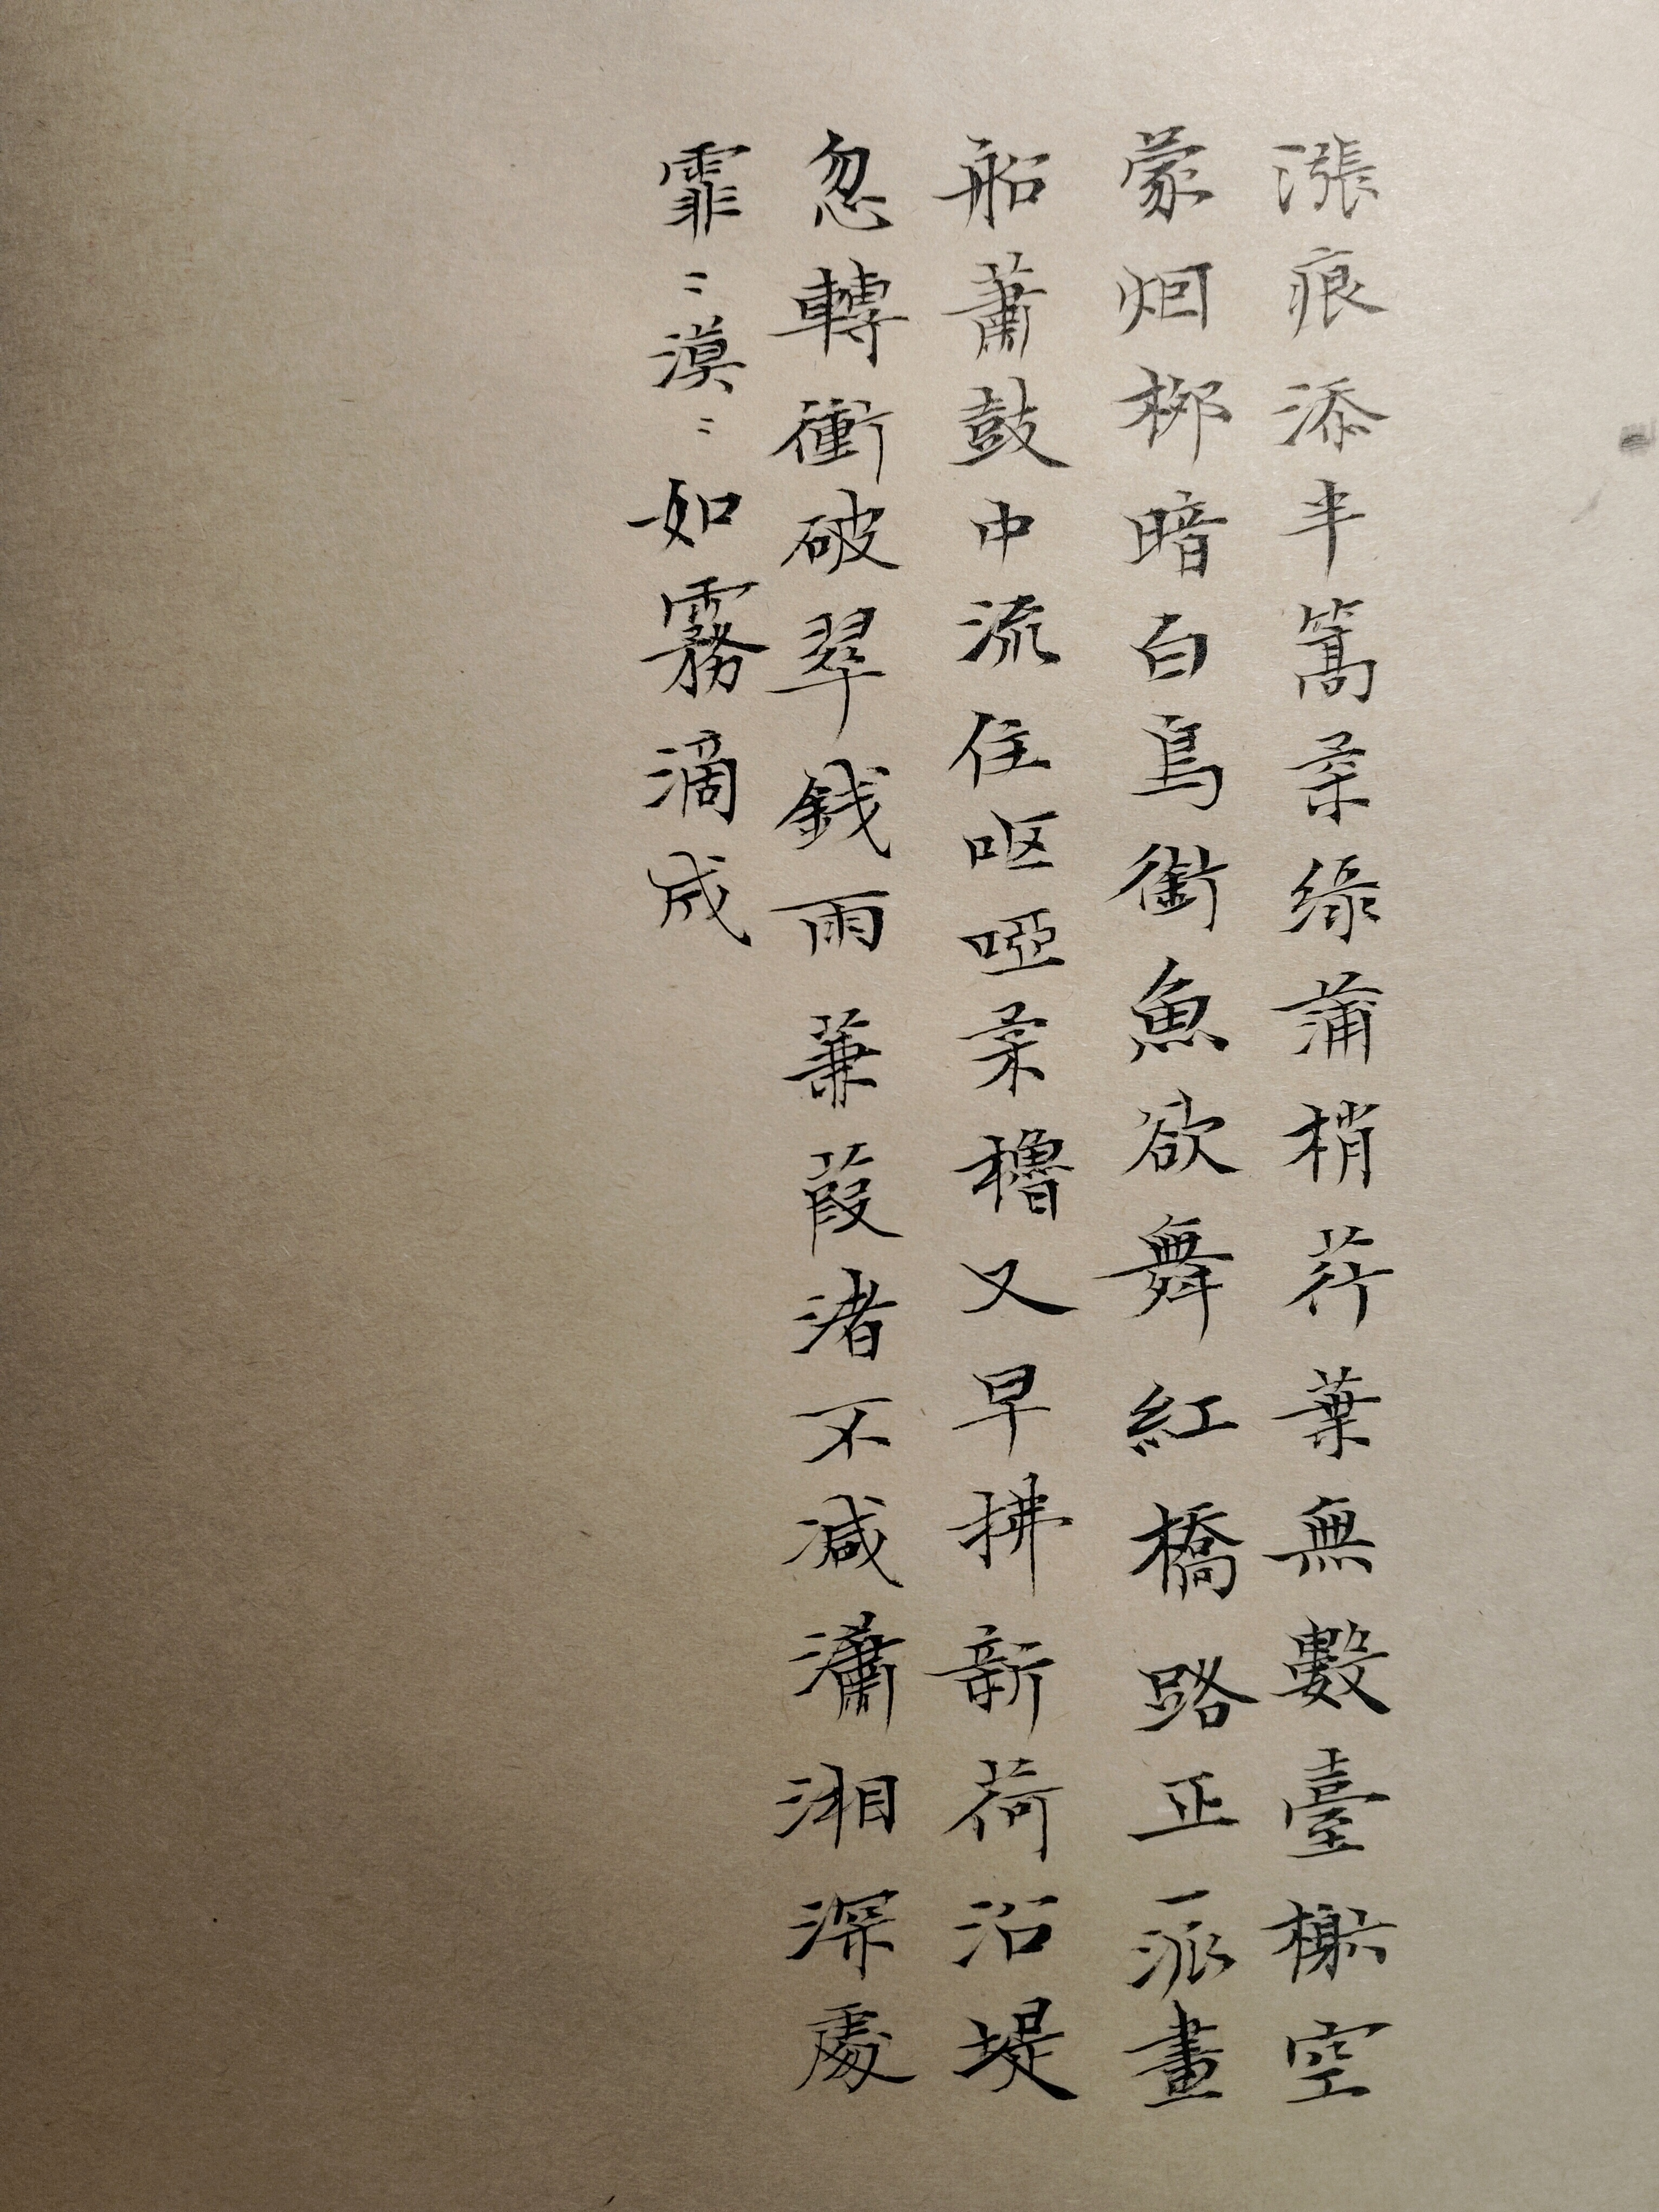 漲痕添半篙柔緑蒲梢荇葉無數臺榭空
蒙烟柳暗白鳥銜魚欲舞紅橋路正一派畫
船蕭鼓中流住呕啞柔櫓又早拂新荷沿堤
忽轉衝破翠銭雨蒹葭渚不減瀟湘深處
霏〻漠〻如霧滴成